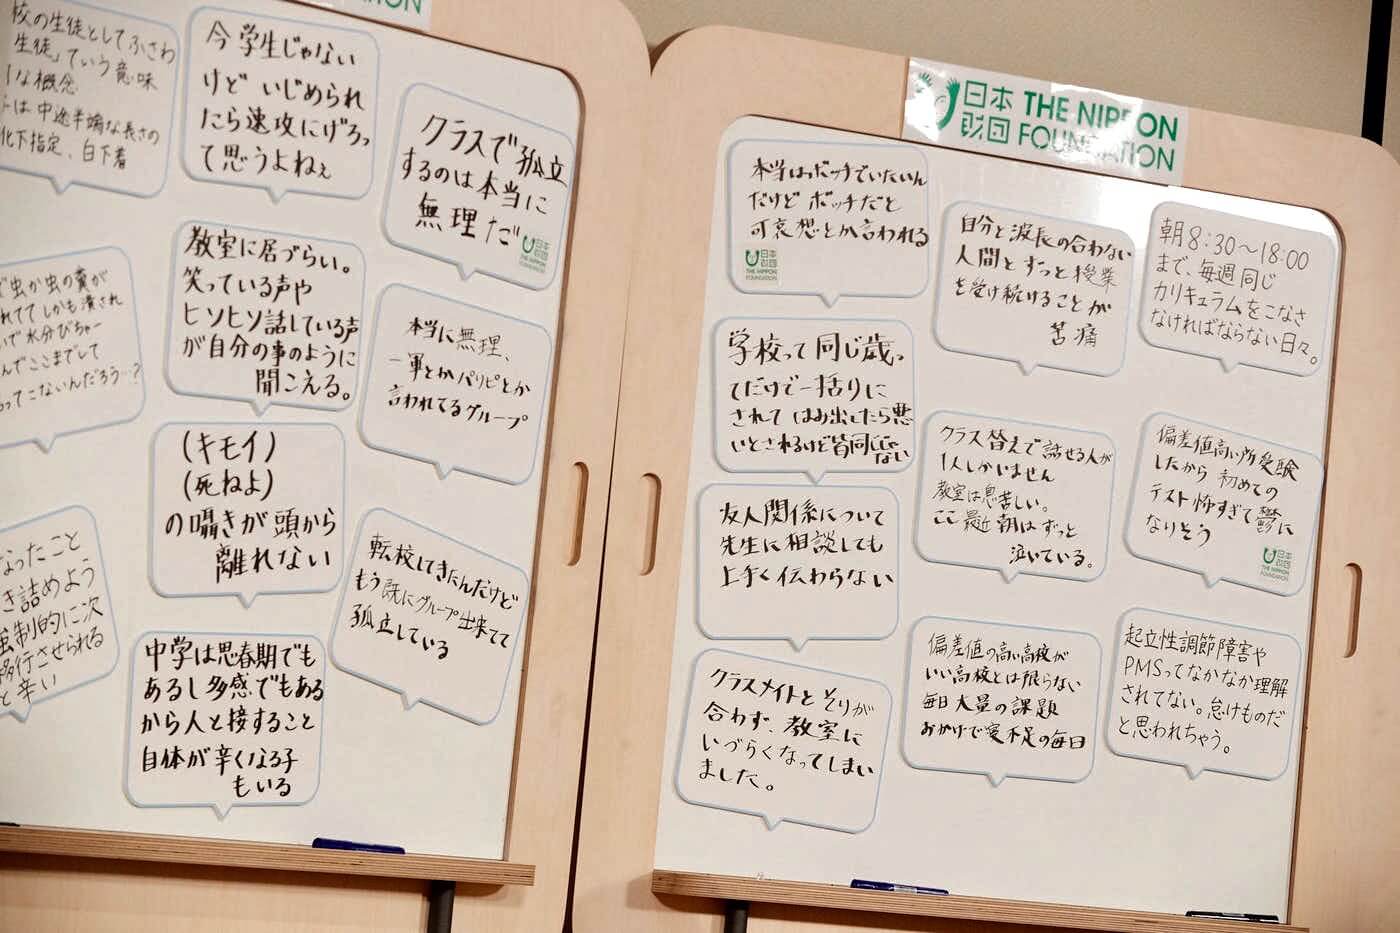 校の生徒としてふさわ
生徒」ていう意味
な概念
は中途半端な長さの
化下指定、白下着
今学生じゃない
けどいじめられ
たら速攻にげろっ
て思うよねぇ
クラスで孤立
するのは本当に
無理だ
日本
財団
THE NIPPON
FOUNDATION
虫か虫の糞が
れてて しかも潰され
いで水分びちゃー
んでここまでして
ってこないんだろう…?
教室に居づらい。
笑っている声や
ヒソヒソ話している声
が自分の事のように
聞こえる。
本当に無理、
一軍とかパリピとか
言われてるグループ
(キモイ)
(死ねよ)
の囁きが頭から
離れない
なったこと
き詰めよう
強制的に次
移行させられる
と辛い
転校してきたんだけど
もう既にグループ出来てて
孤立している
中学は思春期でも
あるし多感でもある
から人と接すること
自体が辛くなる子
もいる
日本
財団
THE NIPPON
FOUNDATION
本当はボッチでいたいん
だけど ボッチだと
可哀想とか言われる
日本
財団
THE NIPPON
FOUNDATION
自分と波長の合わない
人間とずっと授業
を受け続けることが
苦痛
朝8:30～18:00
まで、毎週同じ
カリキュラムをこなさ
なければならない日々。
学校って同じ歳っ
てだけで一括りに
されて はみ出したら悪
いとされるけど皆同じじゃ
ない
クラス替えで話せる人が
1人しかいません
教室は息苦しい。
ここ最近朝はずっと
泣いている。
偏差値高い所受験
したから初めての
テスト怖すぎて鬱に
なりそう
日本
財団
THE NIPPON
FOUNDATION
友人関係について
先生に相談しても
上手く伝わらない
クラスメイトとそりが
合わず、教室に
いづらくなってしまい
ました。
偏差値の高い高校が
いい高校とは限らない
毎日大量の課題
おかげで寝不足の毎日
起立性調節障害や
PMSってなかなか理解
されてない。怠けものだ
と思われちゃう。